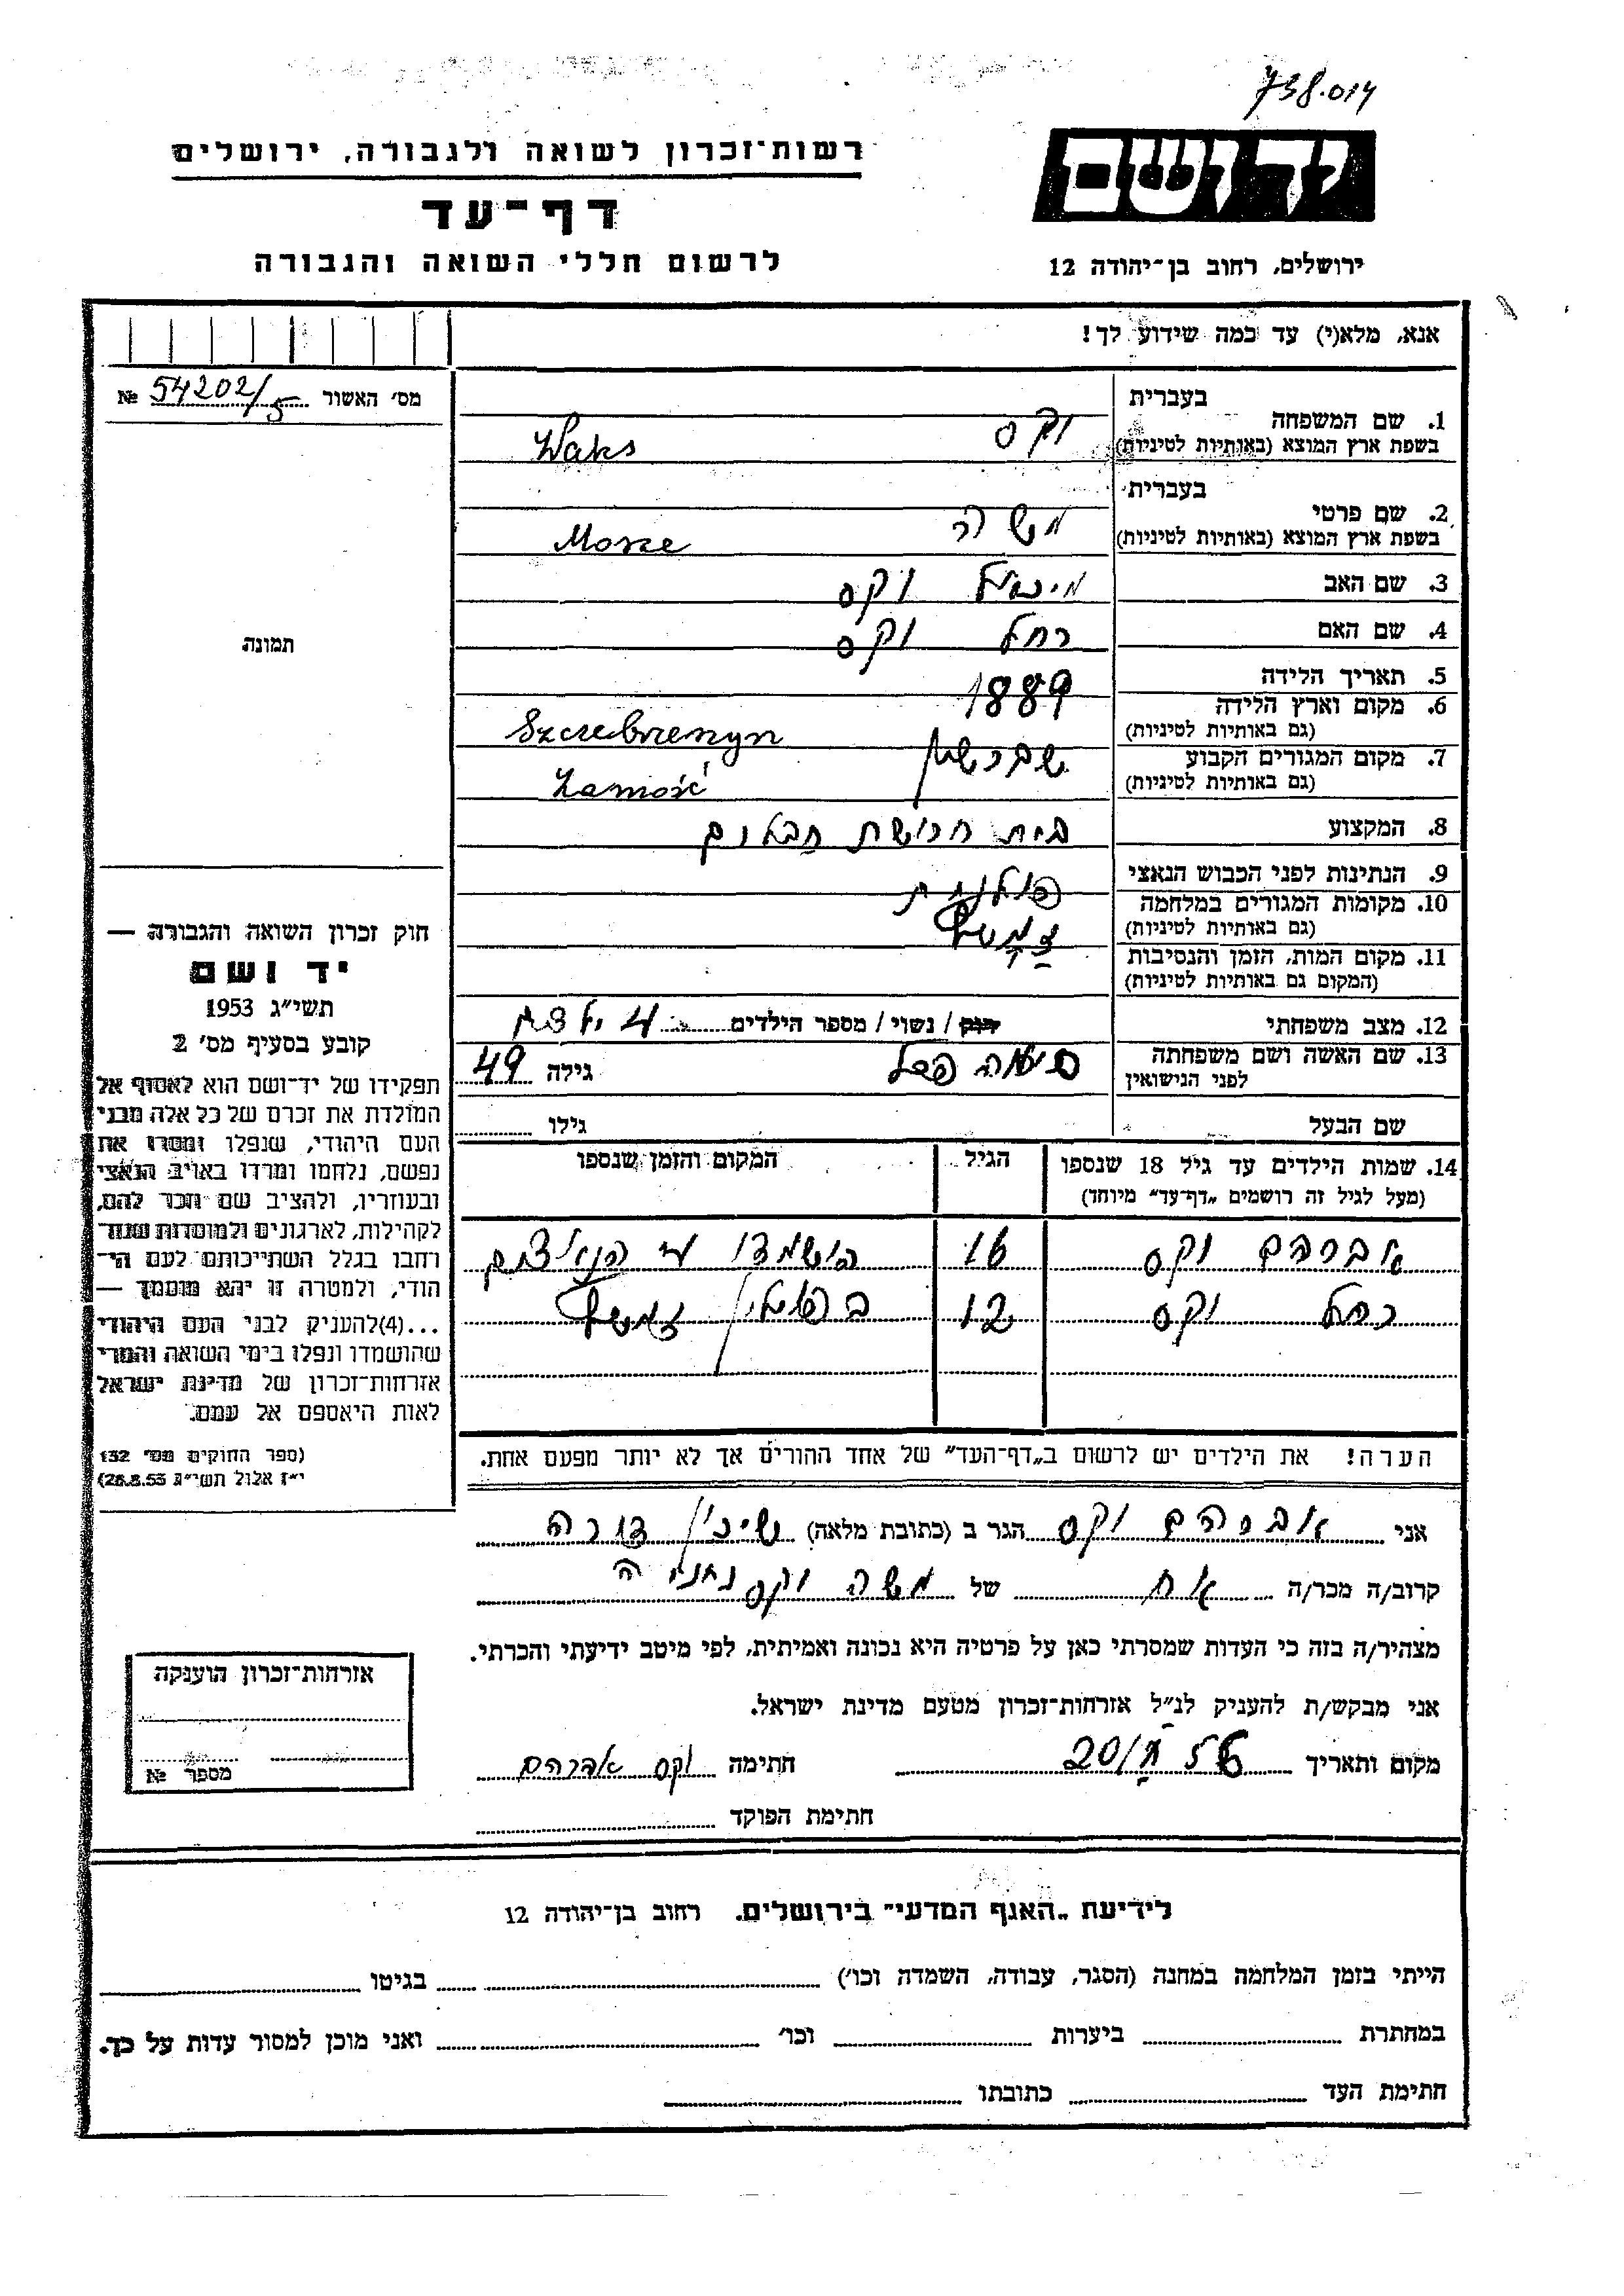 738.014
יד ושם
ירושלים, רחוב בן־יהודה 12
רשות־זכרון לשואה ולגבורה, ירושלים
דף־עד
לרשום חללי השואה והגבורה
אנא, מלא(י) עד כמה שידוע לך!
מס׳ האשור 54202/5 №
תמונה
בעברית
1. שם המשפחה וקס Waks
בשפת ארץ המוצא (באותיות לטיניות)
בעברית
2. שם פרטי משה Mosze
בשפת ארץ המוצא (באותיות לטיניות)
3. שם האב מיכאל וקס
4. שם האם רחל וקס
5. תאריך הלידה 1889
6. מקום וארץ הלידה Szczebrzeszyn
(גם באותיות לטיניות)
7. מקום המגורים הקבוע שברשין Zamość
(גם באותיות לטיניות)
8. המקצוע בית חרושת חבלים
9. הנתינות לפני הכבוש הנאצי פולנית
10. מקומות המגורים במלחמה
(גם באותיות לטיניות)
11. מקום המות, הזמן והנסיבות
(המקום גם באותיות לטיניות)
12. מצב משפחתי רווק / נשוי / מספר הילדים 4 ילדים
13. שם האשה ושם משפחתה
לפני הנישואין גילה 49
שם הבעל גילו
14. שמות הילדים עד גיל 18 שנספו הגיל המקום והזמן שנספו
(מעל לגיל זה רושמים „דף־עד״ מיוחד)
אברהם וקס 16 הושמדו ע״י הנאצים
רחל וקס 12 בפולין
הערה! את הילדים יש לרשום ב„דף־העד״ של אחד ההורים אך לא יותר מפעם אחת.
חוק זכרון השואה והגבורה —
יד ושם
תשי״ג 1953
קובע בסעיף מס׳ 2
תפקידו של יד־ושם הוא לאסוף אל
המולדת את זכרם של כל אלה מבני
העם היהודי, שנפלו ומסרו את
נפשם, נלחמו ומרדו באויב הנאצי
ובעוזריו, ולהציב שם וזכר להם,
לקהילות, לארגונים ולמוסדות שנח־
רבו בגלל השתייכותם לעם הי־
הודי, ולמטרה זו יהא מוסמך —
...(4)להעניק לבני העם היהודי
שהושמדו ונפלו בימי השואה והמרי
אזרחות־זכרון של מדינת ישראל
לאות היאספם אל עמם.
(ספר החוקים מס׳ 132
י״ז אלול תשי״ג 28.8.53)
אני אברהם וקס הגר ב (כתובת מלאה) שיכון דורה
קרוב/ה מכר/ה אח של משה וקס נתניה
מצהיר/ה בזה כי העדות שמסרתי כאן על פרטיה היא נכונה ואמיתית, לפי מיטב ידיעתי והכרתי.
אני מבקש/ת להעניק לנ״ל אזרחות־זכרון מטעם מדינת ישראל.
מקום ותאריך חתימה וקס אברהם
חתימת הפוקד
אזרחות־זכרון הוענקה
מספר №
לידיעת „האגף המדעי״ בירושלים. רחוב בן־יהודה 12
הייתי בזמן המלחמה במחנה (הסגר, עבודה, השמדה וכו׳) בגיטו
במחתרת ביערות וכו׳ ואני מוכן למסור עדות על כך.
חתימת העד כתובתו